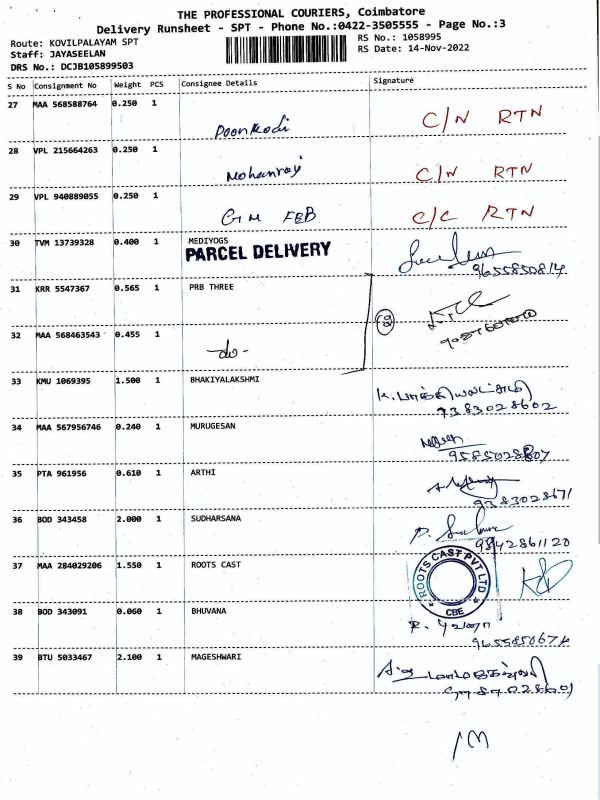 THE PROFESSIONAL COURIERS, Coimbatore
Delivery Runsheet - SPT - Phone No.:0422-3505555 - Page No.:3
Route: KOVILPALAYAM SPT
RS No.: 1058995
Staff: JAYASEELAN
RS Date: 14-Nov-2022
DRS No.: DCJB105899503
S No Consignment No Weight PCS Consignee Details Signature
27 MAA 568588764 0.250 1
Poonkodi C/N RTN
28 VPL 215664263 0.250 1
Mohanraj C/N RTN
29 VPL 940889055 0.250 1
GM FEB C/C RTN
30 TVM 13739328 0.400 1 MEDIYOGS
PARCEL DELIVERY
9655850814
31 KRR 5547367 0.565 1 PRB THREE
32 MAA 568463543 0.455 1
-do-
33 KMU 1069395 1.500 1 BHAKIYALAKSHMI
K. பாக்கியலட்சுமி
9383028602
34 MAA 567956746 0.240 1 MURUGESAN
9585028807
35 PTA 961956 0.610 1 ARTHI
9383028671
36 BOD 343458 2.000 1 SUDHARSANA
9842861120
37 MAA 284029206 1.550 1 ROOTS CAST
ROOTS CAST PVT LTD
CBE
38 BOD 343091 0.060 1 BHUVANA
9655850674
39 BTU 5033467 2.100 1 MAGESHWARI